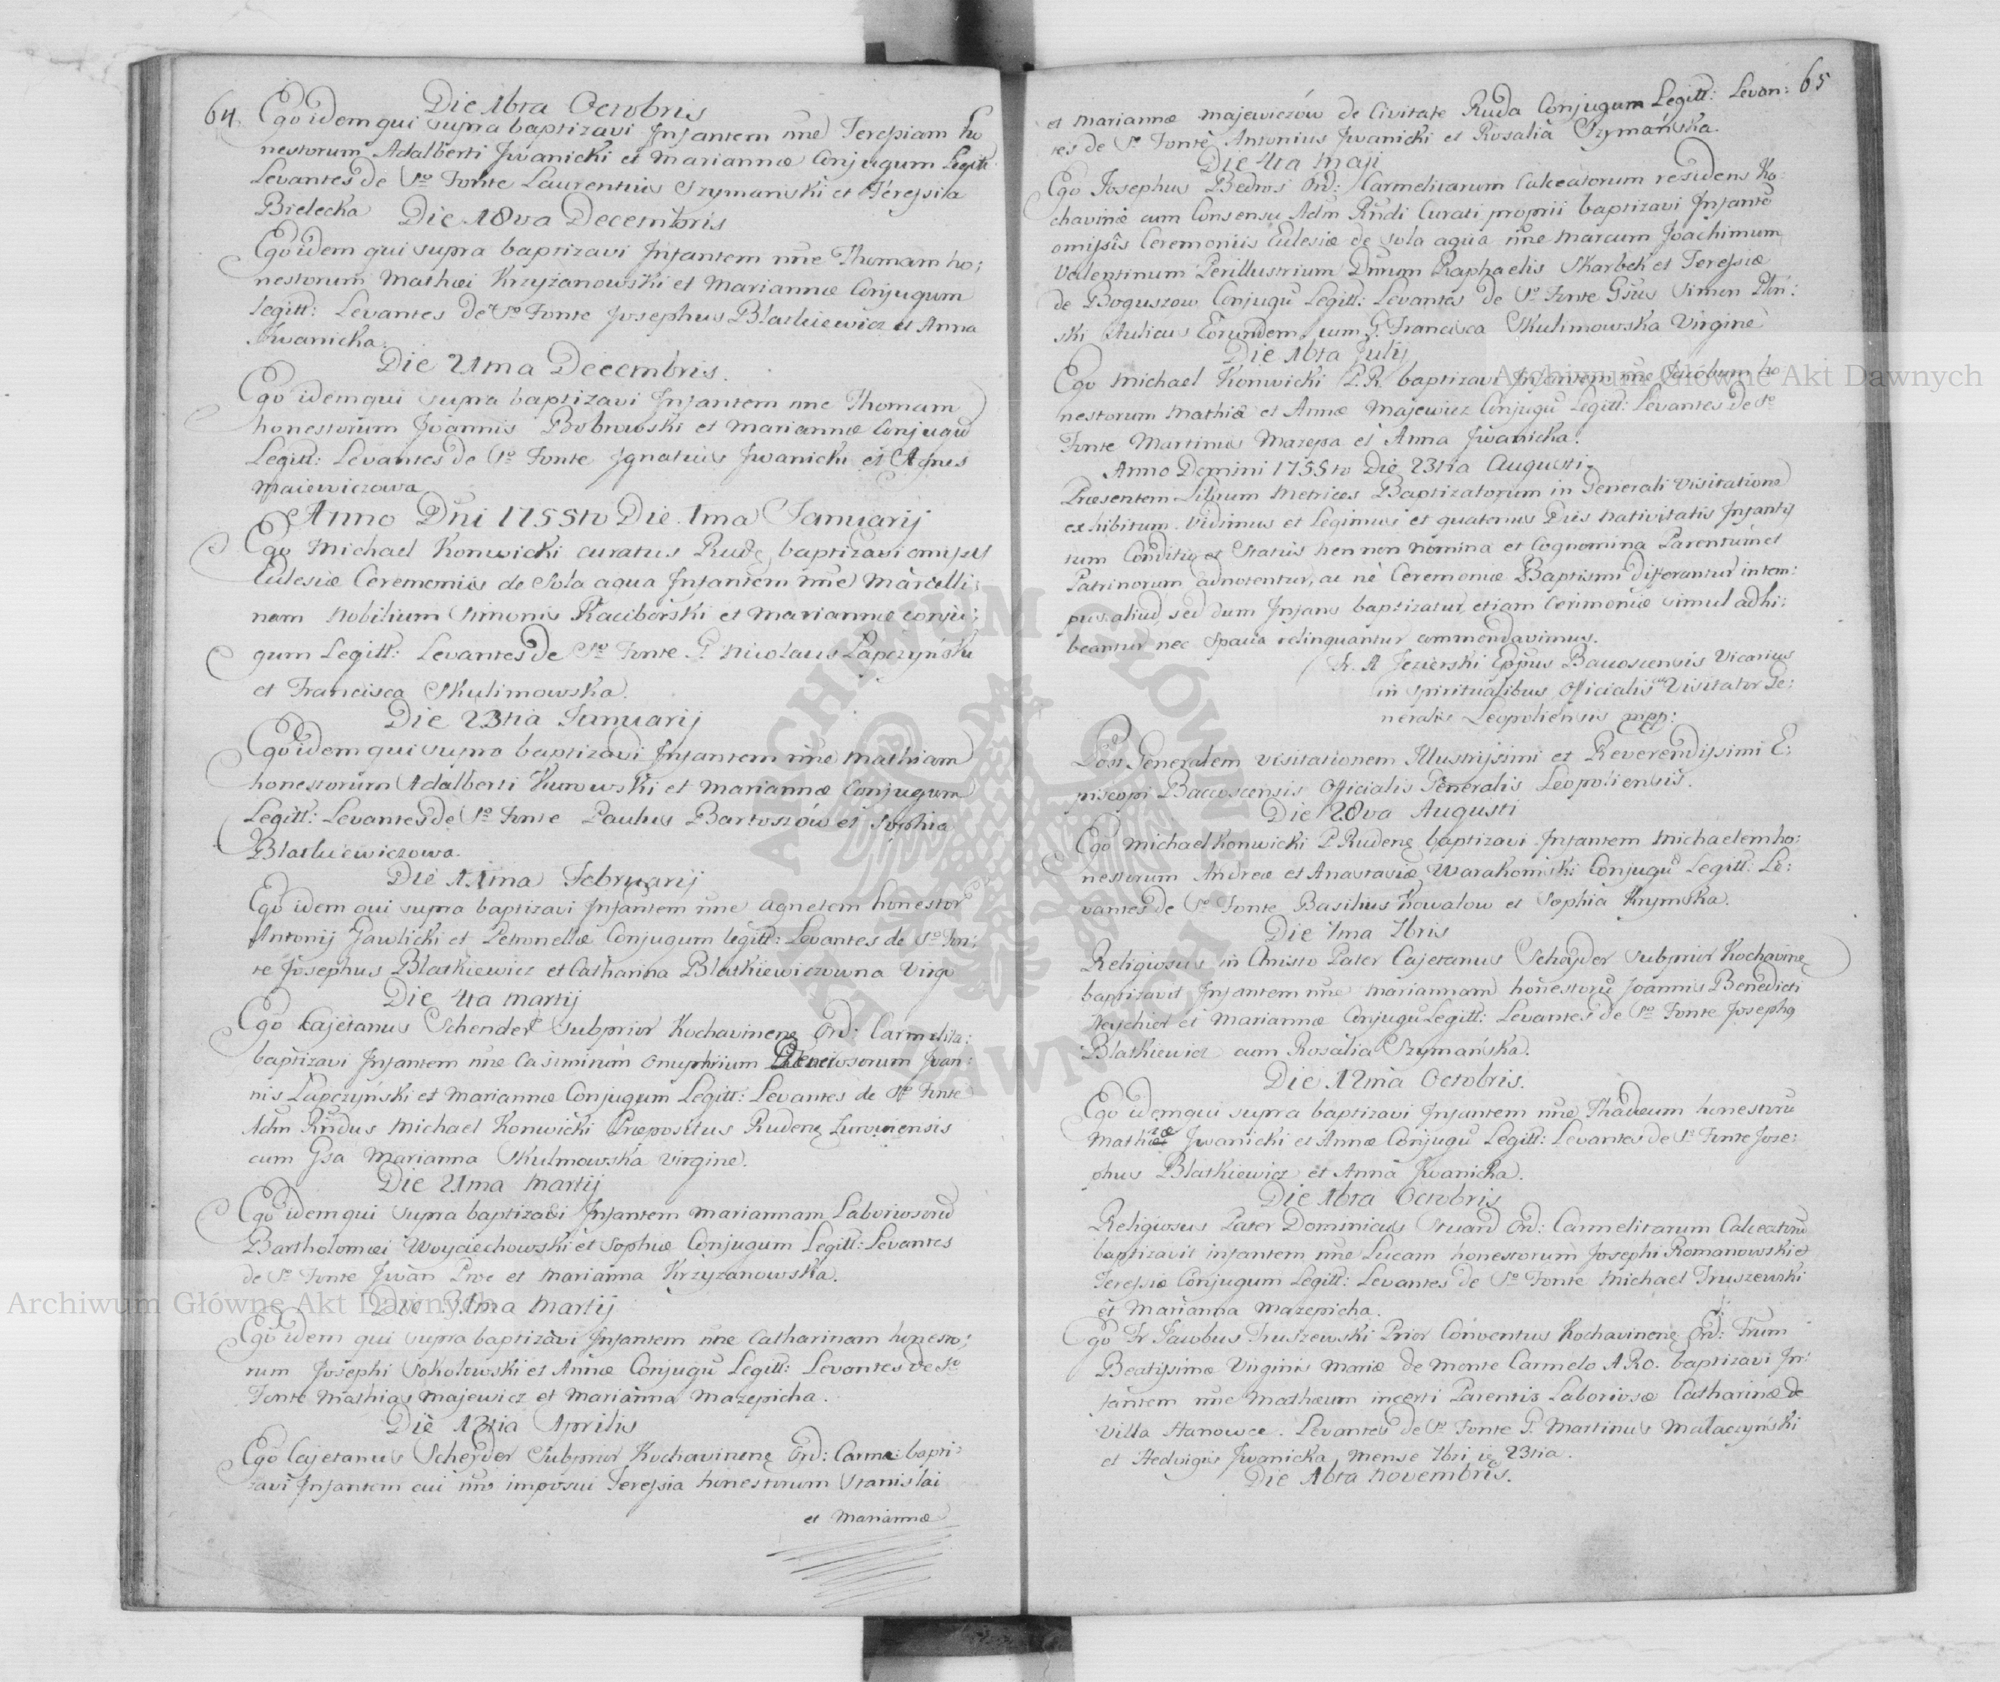 64
Die 16ta Octobris
Ego idem qui supra baptizavi Infantem nne Teressiam ho
nestorum Adalberti Iwanicki et Mariannæ Conjugum Legitt:
Levantes de Sro Fonte Laurentius Szymanski et Teressia
Bielecka Die 18va Decembris
Ego idem qui supra baptizavi Infantem nne Thomam ho:
nestorum Mathæi Krzyżanowski et Mariannæ Conjugum
legitt: Levantes de Sro Fonte Josephus Blatkiewicz et Anna
Iwanicka.
Die 21ma Decembris.
Ego idem qui supra baptizavi Infantem nne Thomam
honestorum Joannis Bobrowski et Mariannæ Conjugu
Legitt: Levantes de Sro Fonte Ignatius Iwanicki et Agnes
Maiewiczowa
Anno Dni 1755to Die 1ma Januarij
Ego Michael Konwicki curatus Rudę baptizavi omissis
Eulesiæ Ceremoniis de Sola aqua Infantem nne Marcelli:
nam Nobilium Simonis Raciborski et Mariannæ conju:
gum Legitt: Levantes de Sro Fonte G. Nicolaus Łapczyński
et Francisca Skulimowska.
Die 23tia Januarij
Ego idem qui supra baptizavi Infantem nne Mathiam
honestorum Adalberti Kurowski et Mariannæ Conjugum
Legitt: Levantes de Sro Fonte Paulus Bartoszów et Sophia
Blatkiewiczowa.
Die 11ma Februarij
Ego idem qui supra baptizavi Infantem nne Agnetem honestor
Antonij Gawlicki et Petronellæ Conjugum legitt: Levantes de Sro Fon:
te Josephus Blatkiewicz et Catharina Blatkiewiczowna Virgo
Die 4ta Martij
Ego Cajetanus Schender Subprior Kochavinenę Ord: Carmelita:
baptizavi Infantem nne Casimirum Onuphrium Generosorum Joan:
nis Łapczyński et Mariannæ Conjugum Legitt: Levantes de Sro Fonte
Adm Rndus Michael Konwicki Præpositus Rudenę Zurovinensis
cum Gsa Marianna Skulmowska virgine.
Die 21ma Martij
Ego idem qui supra baptizavi Infantem Mariannam Laboriosoru
Bartholomæi Woyciechowski et Sophiæ Conjugum Legitt: Levantes
de Sro Fonte Iwan et Marianna Krzyżanowska.
Die 21ma Martij
Ego idem qui supra baptizavi Infantem nne Catharinam honesto:
rum Josephi Sokołowski et Annæ Conjugu Legitt: Levantes de Sro
Fonte Mathias Majewicz et Marianna Mazepicha.
Die 13tia Aprilis
Ego Cajetanus Scheyder Subprior Kochavinenę Ord: Carme: bapti:
zavi Infantem cui nne imposui Teressia honestorum Stanislai
et Mariannæ
65
et Mariannæ Majewiczów de Civitate Ruda Conjugum Legitt: Levan:
tes de Sro Fonte Antonius Iwanicki et Rosalia Szymańska.
Die 4ta Maji
Ego Josephus Bedros Ord: Carmelitarum Calceatorum residens Ko:
chavinæ cum Consensu Adm Rndi Curati proprii baptizavi Infante
omissis Ceremoniis Eulesiæ de sola aqua nne Marcum Joachimum
Valentinum Perillustrium Dnrum Raphaelis Skarbek et Teressiæ
de Boguszow Conjugu Legitt: Levantes de Sro Fonte Gsus Simon
ski Aulicus Eorundem, cum G. Francisca Skulimowska Virgine
Die 16ta Julij
Ego Michael Konwicki P.R. baptizavi Infantem nne Jacobum ho
nestorum Mathiæ et Annæ Majewicz Conjugu Legitt: Levantes de Sro
Fonte Martinus Mazepa et Anna Iwanicka.
Anno Domini 1755to Die 23tia Augusti.
Præsentem Librum Metrices Baptizatorum in Generali Visitatione
exhibitum. Vidimus et Legimus et quatenus Dies Nativitatis Infantis
tum Conditio et Status nec non Nomina et Cognomina Parentum et
Patrinorum adnotentur, ac nè Ceremoniæ Baptismi differantur in tem:
pus aliud, sed dum Infans baptizatur, etiam Cerimoniæ simul adhi:
beantur nec Spatia relinquantur commendavimus.
Fr. A Jezierski Eppus Bacoscensis Vicarius
in Spiritualibus Officialis et Visitator Ge:
neralis Leopoliensis mpp:
Post Generalem Visitationem Illustrissimi et Reverendissimi E:
piscopi Baccoscensis Officialis Generalis Leopoliensis.
Die 28va Augusti
Ego Michael Konwicki P. Rudenę baptizavi Infantem Michaelem ho:
nestorum Andreæ et Anastasiæ Warakomski Conjugu Legitt: Le:
vantes de Sro Fonte Basilius Kowalow et Sophia Krymska.
Die 7ma 7bris
Religiosus in Christo Pater Cajetanus Scheyder Subprior Kochavinę
baptizavit Infantem nne Mariannam honestoru Joannis Benedicti
Neychier et Mariannæ Conjugu Legitt: Levantes de Sro Fonte Josephus
Blatkiewicz cum Rosalia Szymańska.
Die 12ma Octobris.
Ego idem qui supra baptizavi Infantem nne Thadæum honestoru
Mathiæ Iwanicki et Annæ Conjugu Legitt: Levantes de Sro Fonte Jose:
phus Blatkiewicz et Anna Iwanicka.
Die 16ta Octobris
Religiosus Pater Dominicus Stuard Ord: Carmelitarum Calceatoru
baptizavit infantem nne Lucam honestorum Josephi Romanowski et
Teressiæ Conjugum Legitt: Levantes de Sro Fonte Michael Truszewski
et Marianna Mazepicha.
Ego Fr Jacobus Truszewski Prior Conventus Kochavinenę Ord: Frum
Beatissimæ Virginis Mariæ de Monte Carmelo A.R.O. baptizavi In:
fantem nne Mathæum incerti Parentis Laboriosæ Catharinæ de
Villa Hanowce. Levantes de Sro Fonte G. Martinus Małaczyński
et Hedvigis Iwanicka Mense 7bri 23tia.
Die 16ta Novembris.
Archiwum Główne Akt Dawnych
Archiwum Główne Akt Dawnych
ARCHIWUM GŁÓWNE AKT DAWNYCH